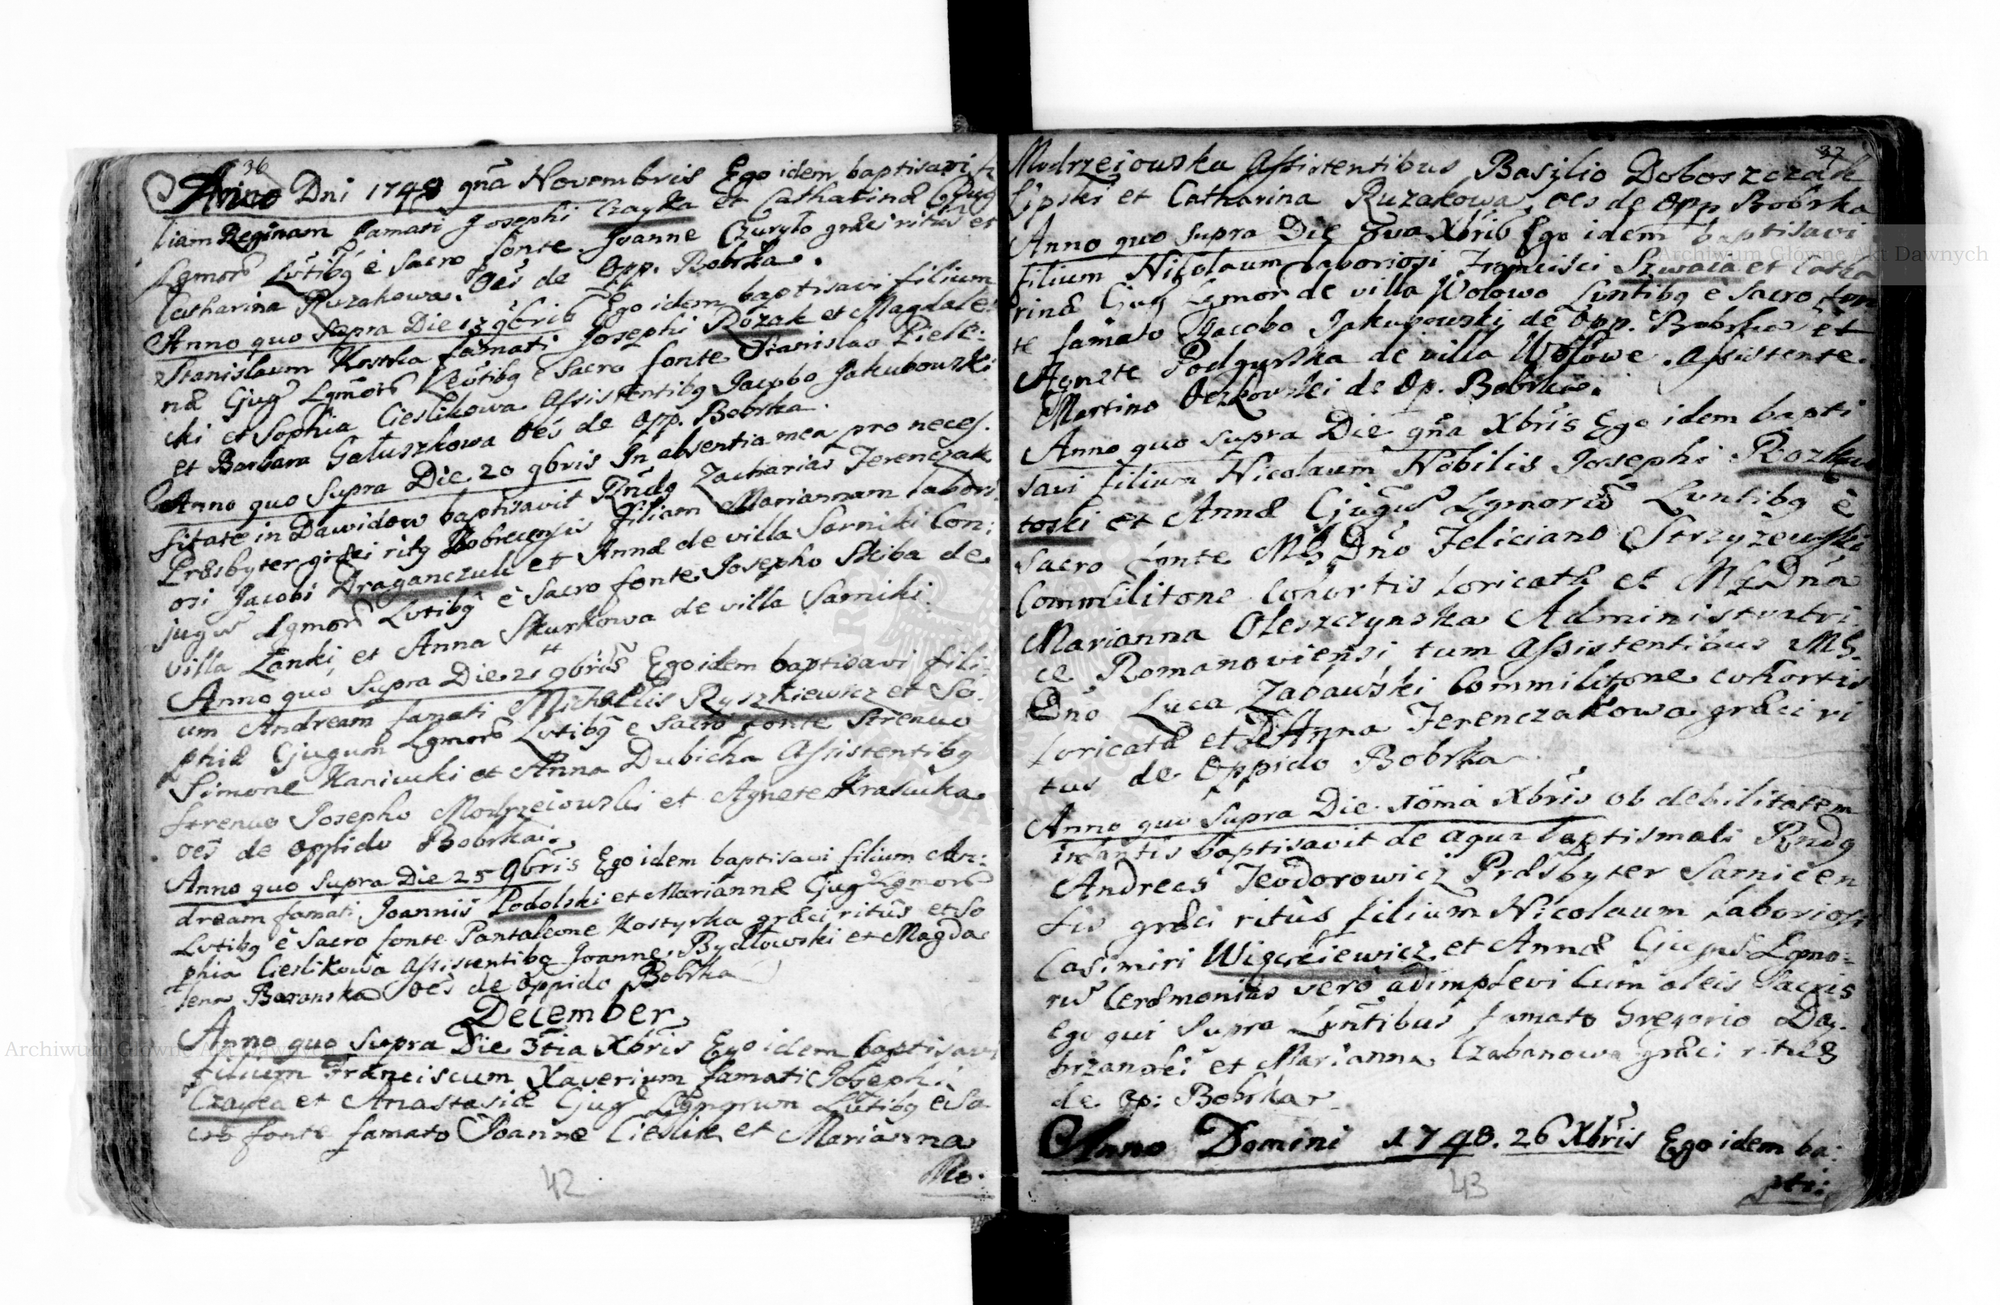 36
Anno Dni 1748 9na Novembris Ego idem baptisavi fi
liam Reginam famati Josephi Czayka et Catharinæ Cjug
Lgmor Lvtibg è Sacro fonte Joanne Czuryło græci ritus et
Catharina Ruzakowa. Oes de Opp. Bobrka.
Anno quo Supra Die 13 9bris Ego idem baptisavi filium
Stanislaum Kostka famati Josephi Rózak et Magdale:
næ Cjug Lgmor Levtibg è Sacro fonte Stanislao Piele:
cki et Sophia Cieslikowa Assistentibg Jacobo Jakubowski
et Barbara Gałuszkowa Oes de Opp. Bobrka.
Anno quo Supra Die 20 9bris In absentia mea pro neces.
sitate in Dawidow baptisavit Rndg Zacharias Ferenczak
Præsbyter græci ritg Bobrecensis filiam Mariannam labori
osi Jacobi Draganczuk et Annæ de villa Sarniki Con:
jugu Lgmor Lvtibg è Sacro fonte Josepho Skiba de
villa Łanki et Anna Skurkowa de villa Sarniki.
Anno quo Supra Die 21 9bris Ego idem baptisavi fili:
um Andream famati Michaelis Ryszkiewicz et So:
phiæ Cjugum Lgmor Lvtibg è Sacro fonte Strenuo
Simone Kaniucki et Anna Dubicka Assistentibg
strenuo Josepho Modrzeiowski et Agnete Krasucka
oes de oppido Bobrka.
Anno quo Supra Die 25 9bris Ego idem baptisavi filium An:
dream famati Joannis Podolski et Mariannæ Cjug Lgmor
Lvtibg è Sacro fonte Pantaleone Kostyrka græci ritus et So
phia Cieslikowa Assistentibg Joanne Bydłowski et Magda
lena Baranska Oes de Oppido Bobrka
December
Anno quo Supra Die 3tia Xbris Ego idem baptisavi
filium Franciscum Xaverium famati Josephi
Czayka et Anastasiæ Cjug Lgmorum Lvtibg è Sa
cro fonte famato Joanne Cieslik et Marianna
Mo:
42
37
Modrzeiowska Assistentibus Basilio Doboszczak
et Catharina Ruzakowa, oes de Opp Bobrka
Anno quo supra Die 7va Xbris Ego idem baptisavi
filium Nicolaum laboriosi Francisci Szwaca et Catha
rinæ Cjug Lgmor de villa Wolowo Lvntibg è Sacro fon
te famato Jacobo Jakubowski de Opp. Bobrka et
Agnete Podgurska de villa Wołowe. Assistente
Martino Oczkowski de Op. Bobrka.
Anno quo supra Die 9na Xbris Ego idem bapti
savi filium Nicolaum Nobilis Josephi Rozkw
toski et Annæ Cjugu Lgmor Lvntibg è
sacro fonte Mg Dno Feliciano Strzyżewski
Commilitone Cohortis Loricatæ et Mg Dna
Marianna Oleszczynska Administratri
ce Romanoviensi tum Assistentibus Mg.
Dno Luca Zabawski Commilitone cohortis
Loricatæ et Anna Ferenczakowa græci ri
tus de Oppido Bobrka
Anno quo Supra Die 10ma Xbris ob debilitatem
infantis baptisavit de aqua baptismali Rndg
Andreas Teodorowicz Præsbyter Sarnicen
sis græci ritûs filium Nicolaum laboriosi
Casimiri Wigczeiewicz et Annæ Cjugu Lgmo=
ru Ceræmonias verò adimplevi Cum oleis Sacris
ego qui supra Lvntibus famato Gregorio Da.
brzanski et Marianna Czabanowa græci ritus
de Op: Bobrka
Anno Domini 1748. 26 Xbris Ego idem ba:
pti:
43
Archiwum Główne Akt Dawnych
Archiwum Główne Akt Dawnych